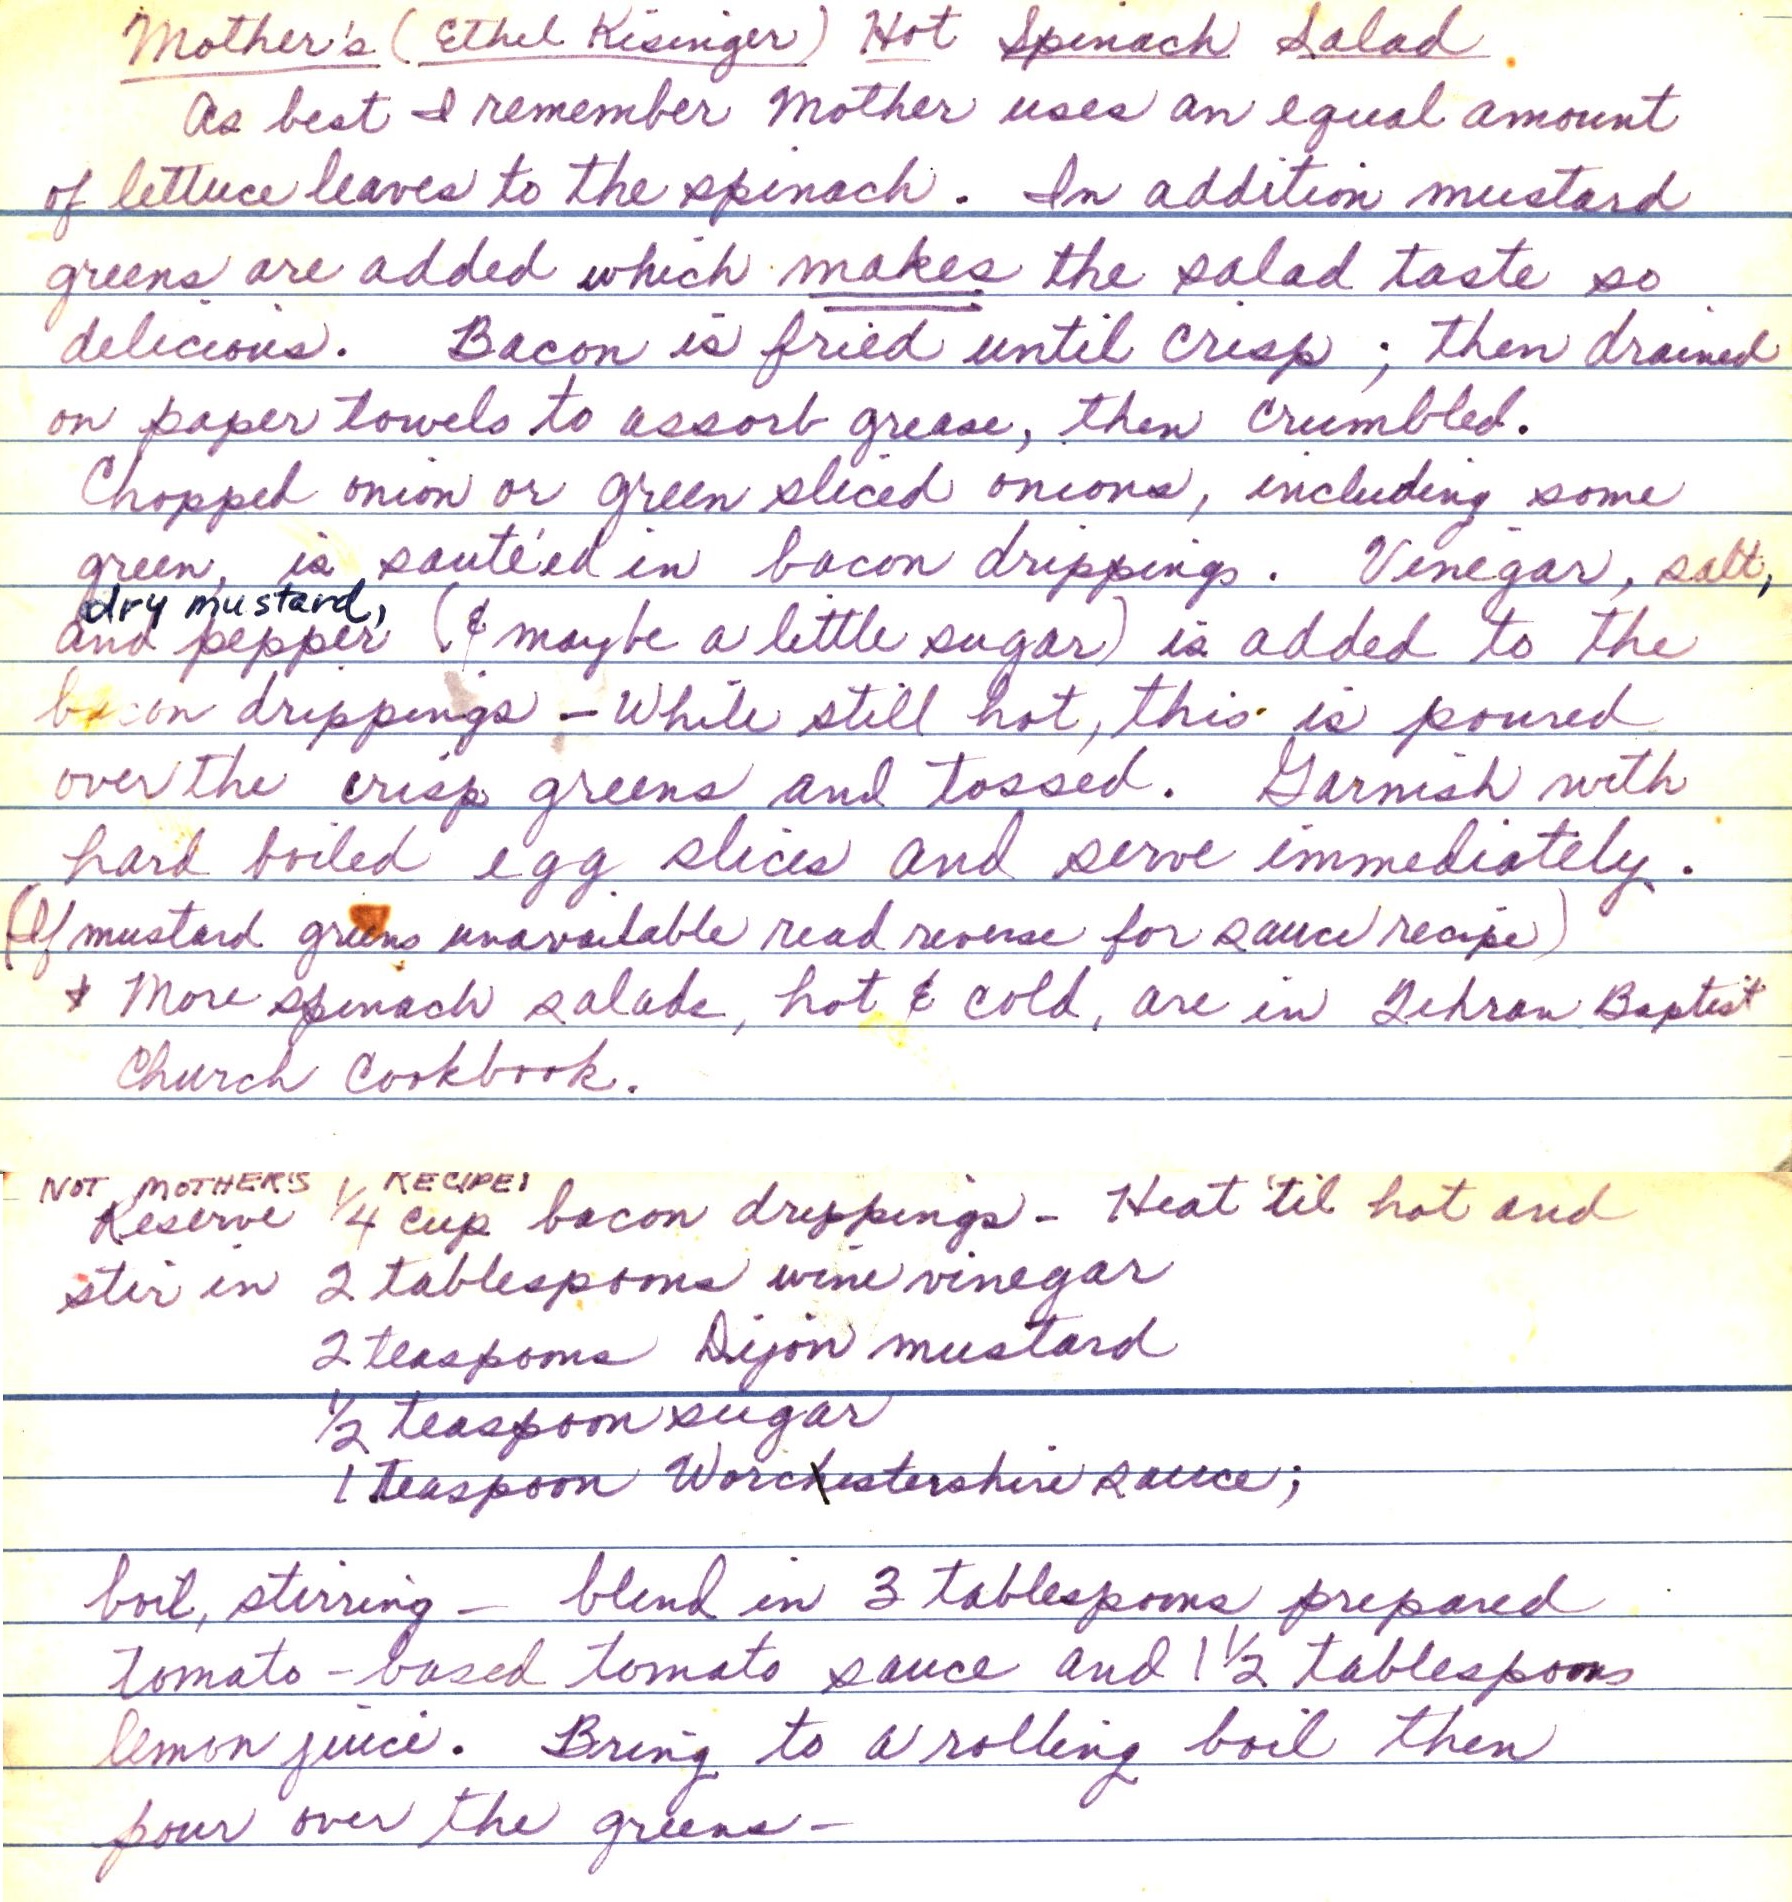 Mother's (Ethel Kisinger) Hot Spinach Salad
As best I remember Mother uses an equal amount
of lettuce leaves to the spinach. In addition mustard
greens are added which makes the salad taste so
delicious. Bacon is fried until crisp; then drained
on paper towels to assorb grease, then crumbled.
Chopped onion or green sliced onions, including some
green, is sauté'ed in bacon drippings. Vinegar, salt,
dry mustard,
and pepper (& maybe a little sugar) is added to the
bacon drippings - While still hot, this is poured
over the crisp greens and tossed. Garnish with
hard boiled egg slices and serve immediately.
(If mustard greens unavailable read reverse for sauce recipe)
& More spinach salads, hot & cold, are in Tehran Baptist
Church Cookbook.
NOT MOTHER'S RECIPE:
Reserve 1/4 cup bacon drippings - Heat 'til hot and
stir in 2 tablespoons wine vinegar
2 teaspoons Dijon mustard
1/2 teaspoon sugar
1 teaspoon Worchestershire sauce;
boil, stirring - blend in 3 tablespoons prepared
tomato-based tomato sauce and 1 1/2 tablespoons
lemon juice. Bring to a rolling boil then
pour over the greens-